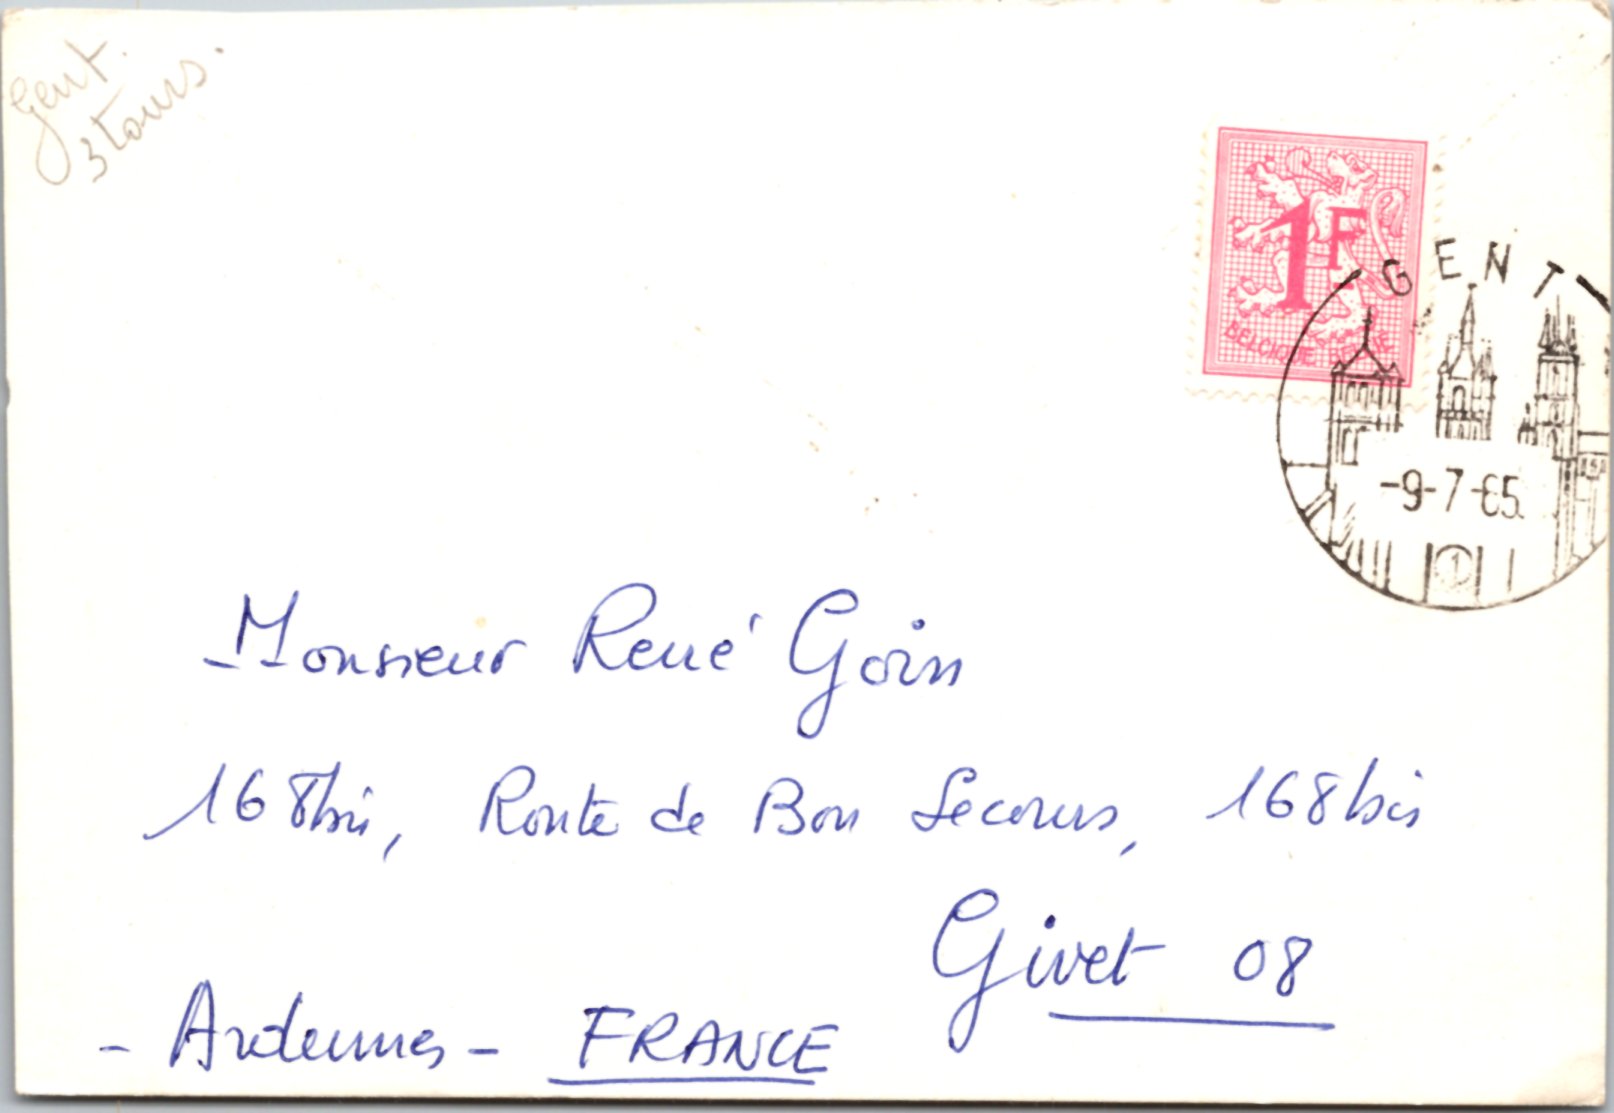 Gent.
3 tours.
1F
BELGIQUE BELGIE
GENT
-9-7-65
1
Monsieur René Goin
168bis, Route de Bon Secours, 168bis
Givet 08
- Ardennes - FRANCE